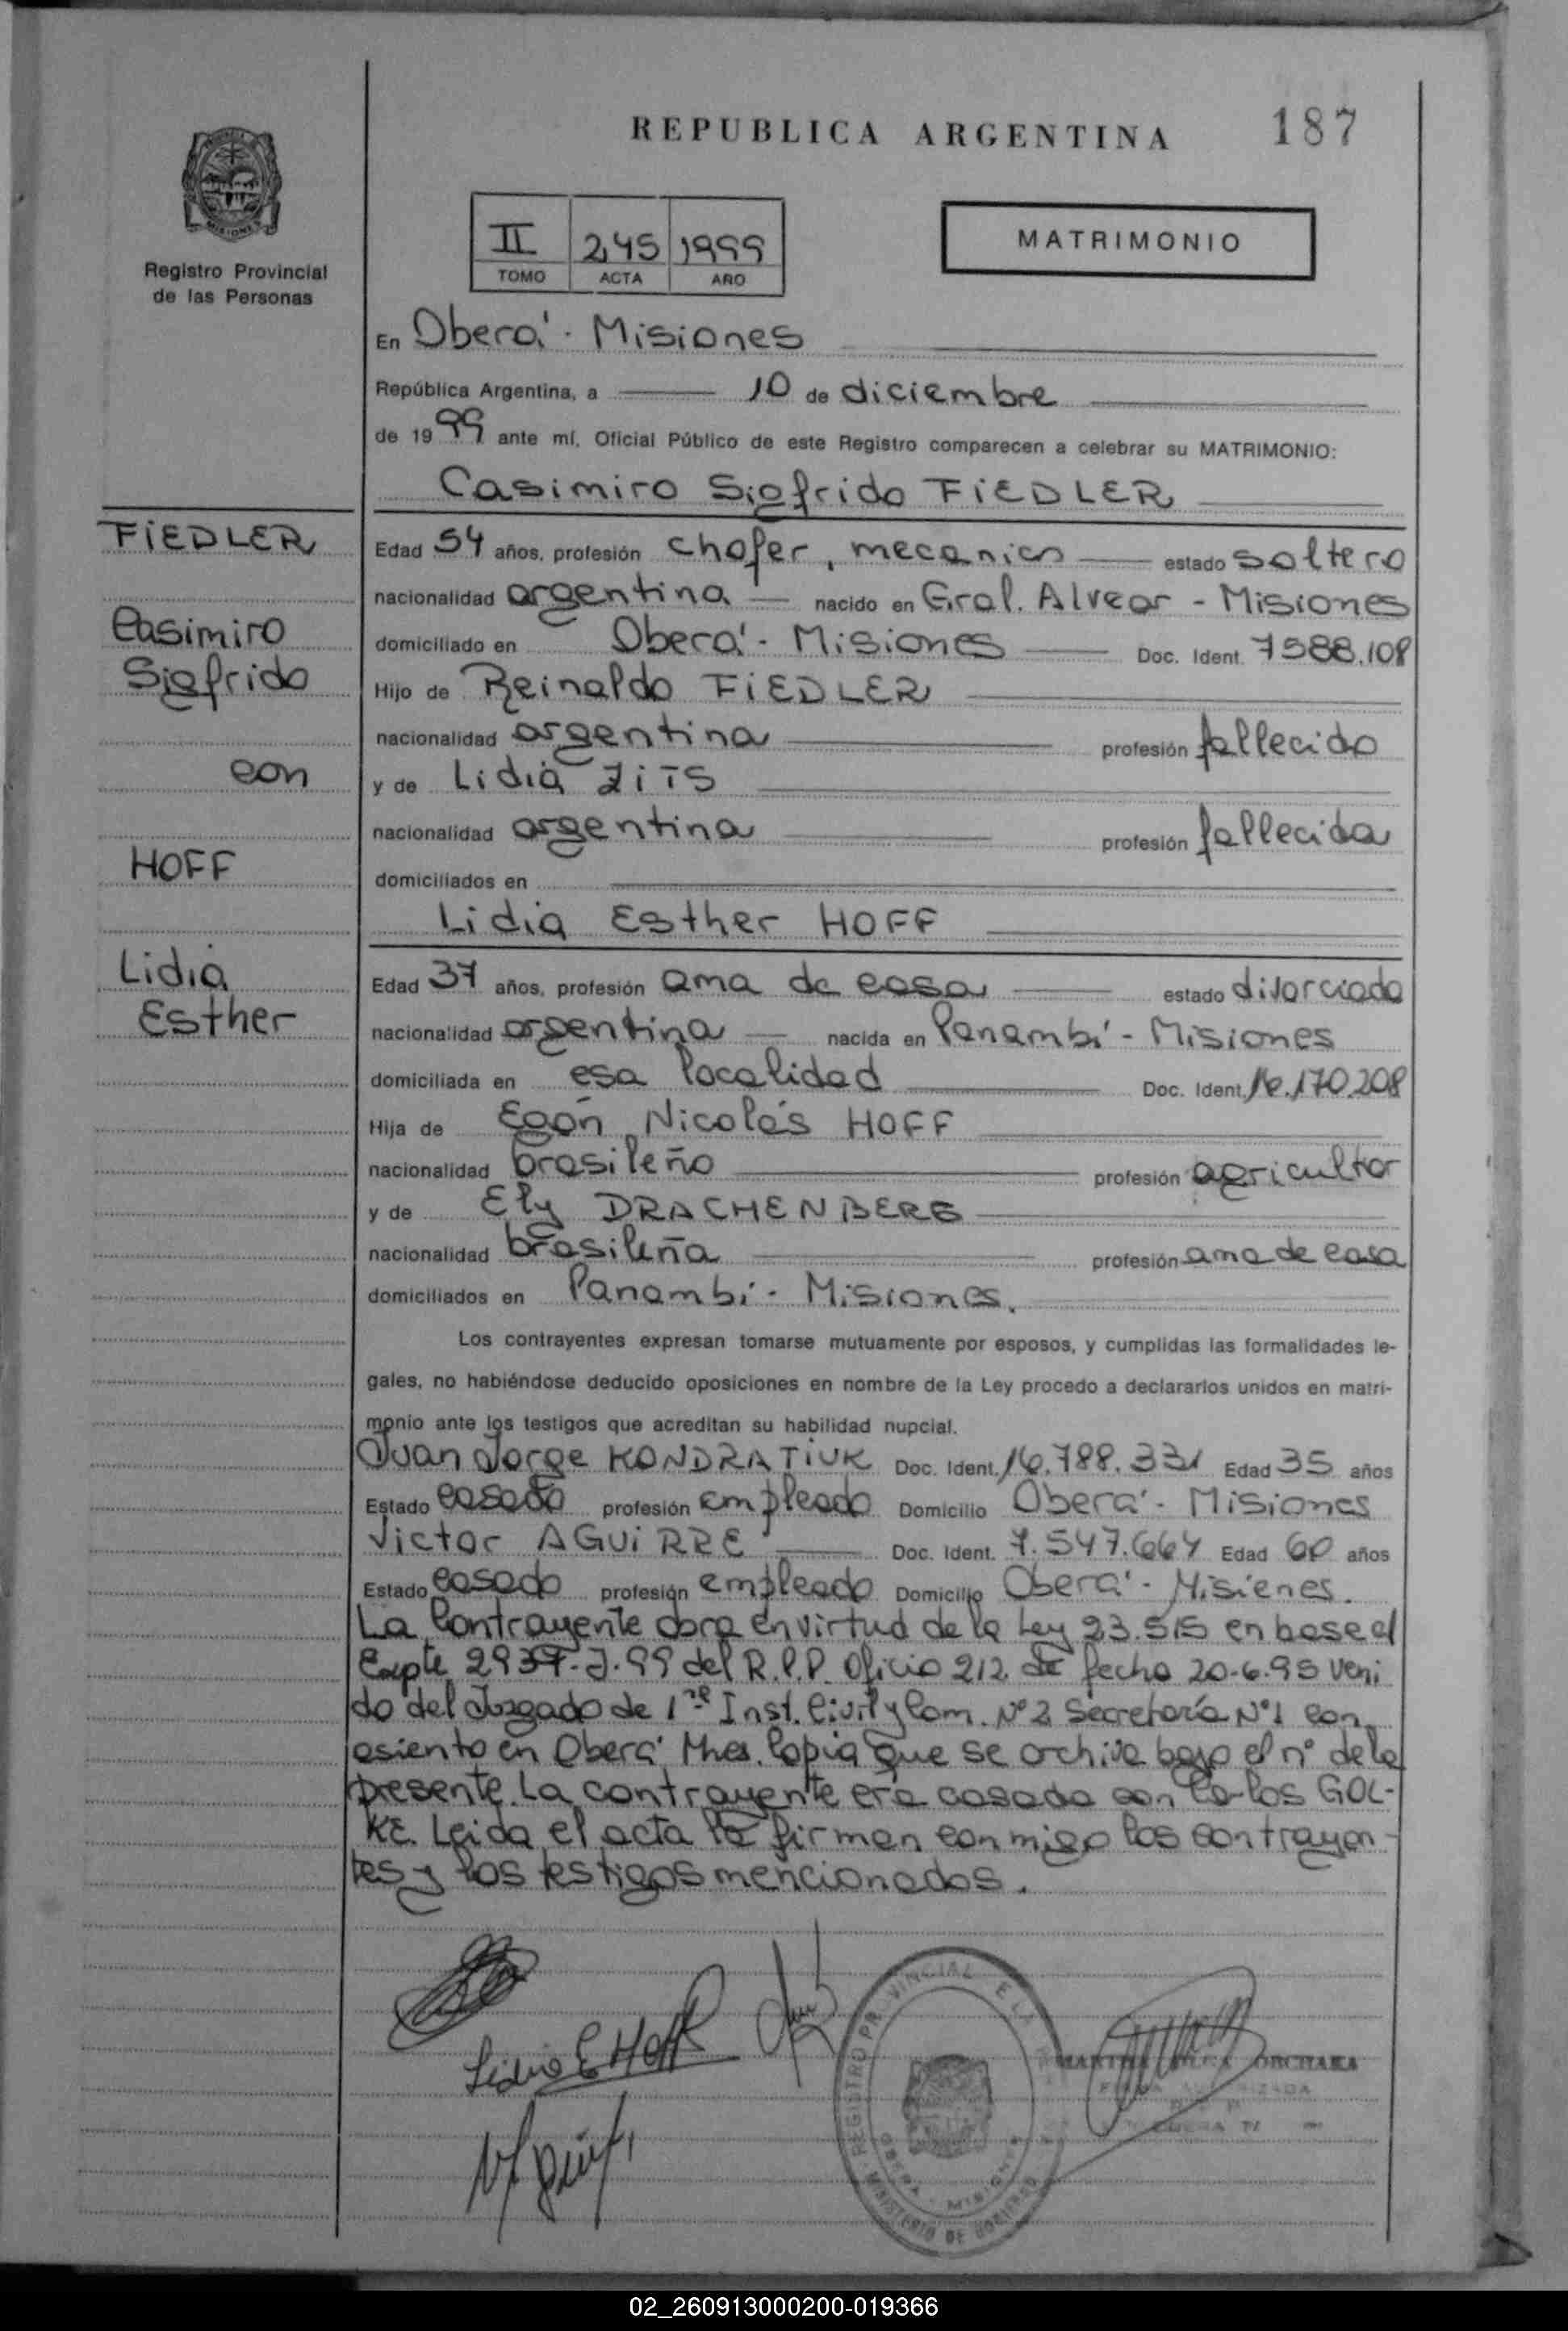 REPUBLICA ARGENTINA
187
II 245 1999
TOMO ACTA AÑO
MATRIMONIO
Registro Provincial
de las Personas
En Oberá - Misiones
República Argentina, a 10 de diciembre
de 1999 ante mí, Oficial Público de este Registro comparecen a celebrar su MATRIMONIO:
Casimiro Sigfrido FiEDLER
FiEDLER
Casimiro
Sigfrido
con
HOFF
Lidia
Esther
Edad 54 años, profesión chofer, mecanico estado soltero
nacionalidad argentina nacido en Gral. Alvear - Misiones
domiciliado en Oberá - Misiones Doc. Ident. 7588.108
Hijo de Reinaldo FiEDLER
nacionalidad argentina profesión fallecido
y de Lidia ZiTS
nacionalidad argentina profesión fallecida
domiciliados en
Lidia Esther HOFF
Edad 37 años, profesión ama de casa estado divorciada
nacionalidad argentina nacida en Panambí - Misiones
domiciliada en esa localidad Doc. Ident. 16.170.208
Hija de Egon Nicolás HOFF
nacionalidad brasileño profesión agricultor
y de Ely DRACHENBERG
nacionalidad brasileña profesión ama de casa
domiciliados en Panambí - Misiones.
Los contrayentes expresan tomarse mutuamente por esposos, y cumplidas las formalidades le-
gales, no habiéndose deducido oposiciones en nombre de la Ley procedo a declararlos unidos en matri-
monio ante los testigos que acreditan su habilidad nupcial.
Juan Jorge KONDRATIUK Doc. Ident. 16.788.331 Edad 35 años
Estado casado profesión empleado Domicilio Oberá - Misiones
Victor AGUiRRE Doc. Ident. 7.547.664 Edad 60 años
Estado casado profesión empleado Domicilio Oberá - Misiones.
La Contrayente obra en virtud de la Ley 23.515 en base al
Expte 2937-J-99 del R.P.P. Oficio 212 de fecha 20-6-95 veni
do del Juzgado de 1ra Inst. Civil y Com. Nº 2 Secretaría Nº 1 con
asiento en Oberá Mnes. Copia que se archiva bajo el nº de la
presente. La contrayente era casada con Carlos GOL-
KE. Leida el acta la firman conmigo los contrayen-
tes y los testigos mencionados.
Lidia E Hoff
REGISTRO PROVINCIAL
OBERA - MISIONES
MINISTERIO DE GOBIERNO
02_260913000200-019366